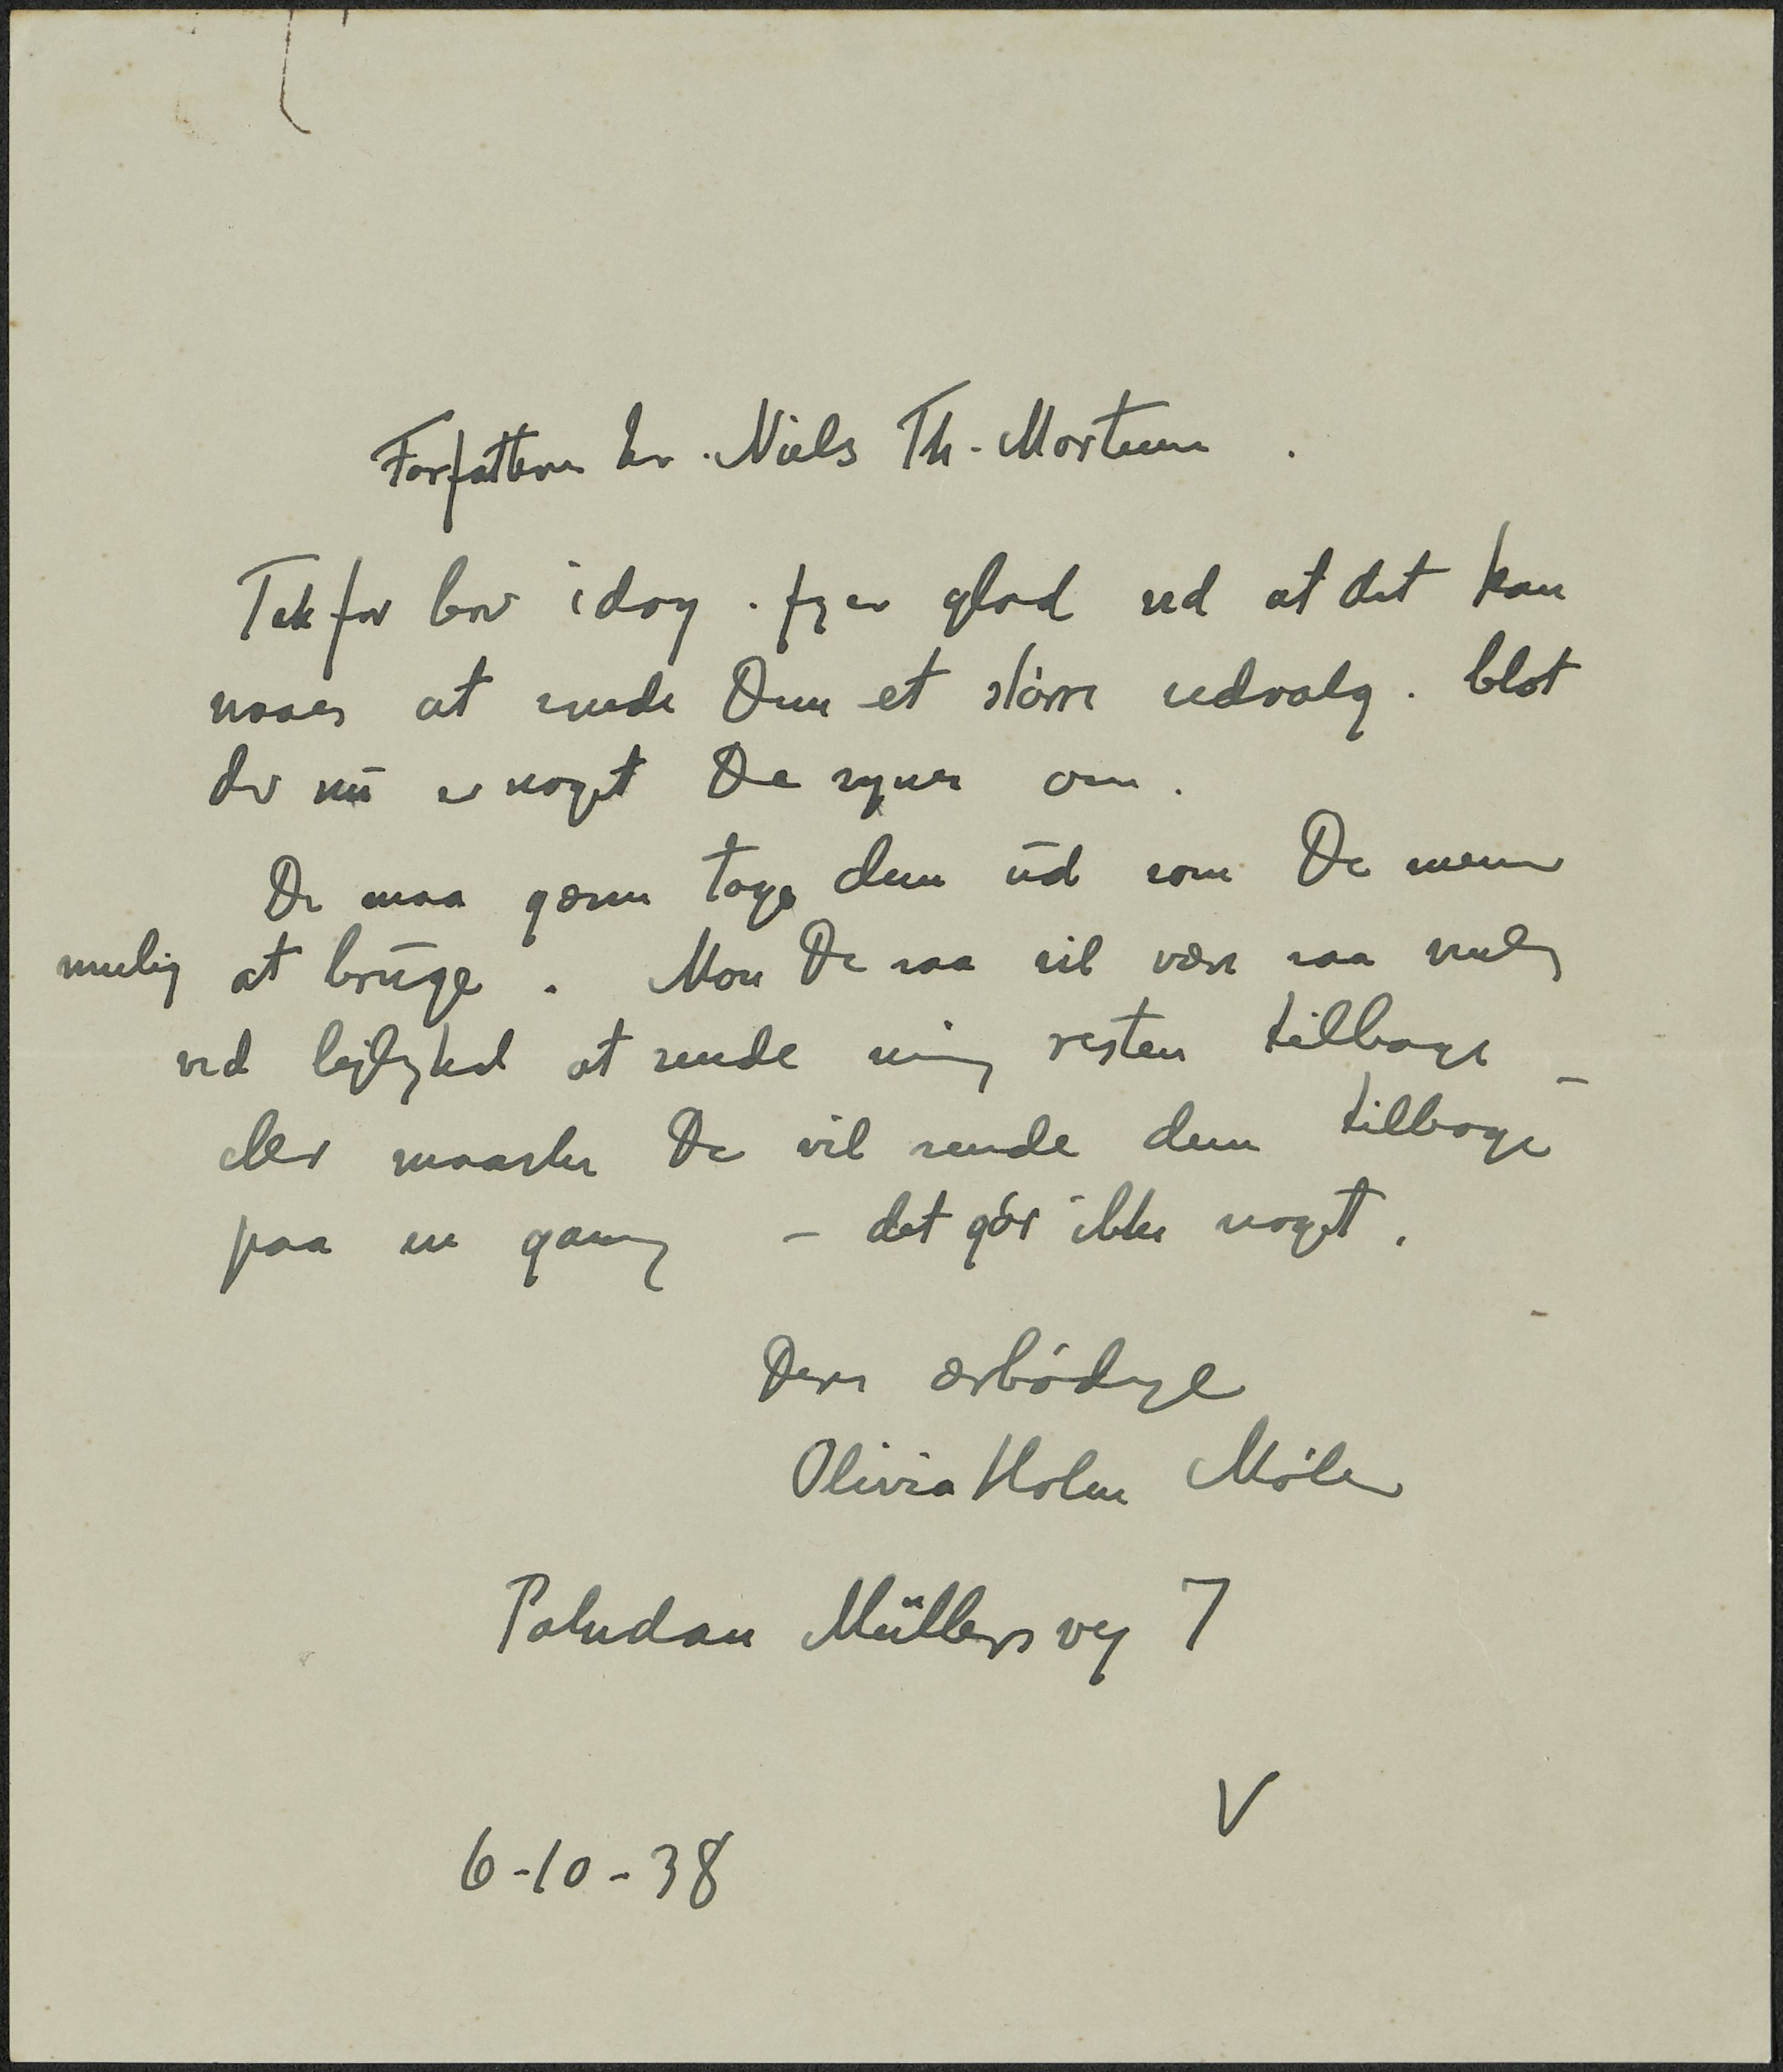 Forfatteren hr. Niels Th. Mortensen.
Tak for brev idag. Jeg er glad ved at det kan
naaes at sende Dem et större udvalg. blot
der nu er noget De synes om.
De maa gærne tage dem ud som De mener
mulig at bruge. Mon De saa vil være saa venlig
ved lejlighed at sende mig resten tilbage –
eller maaske De vil sende dem tilbage
paa en gang – det gör ikke noget.
Deres ærbödige
Olivia Holm Möller
Paludan Müllersvej 7
V
6-10-38